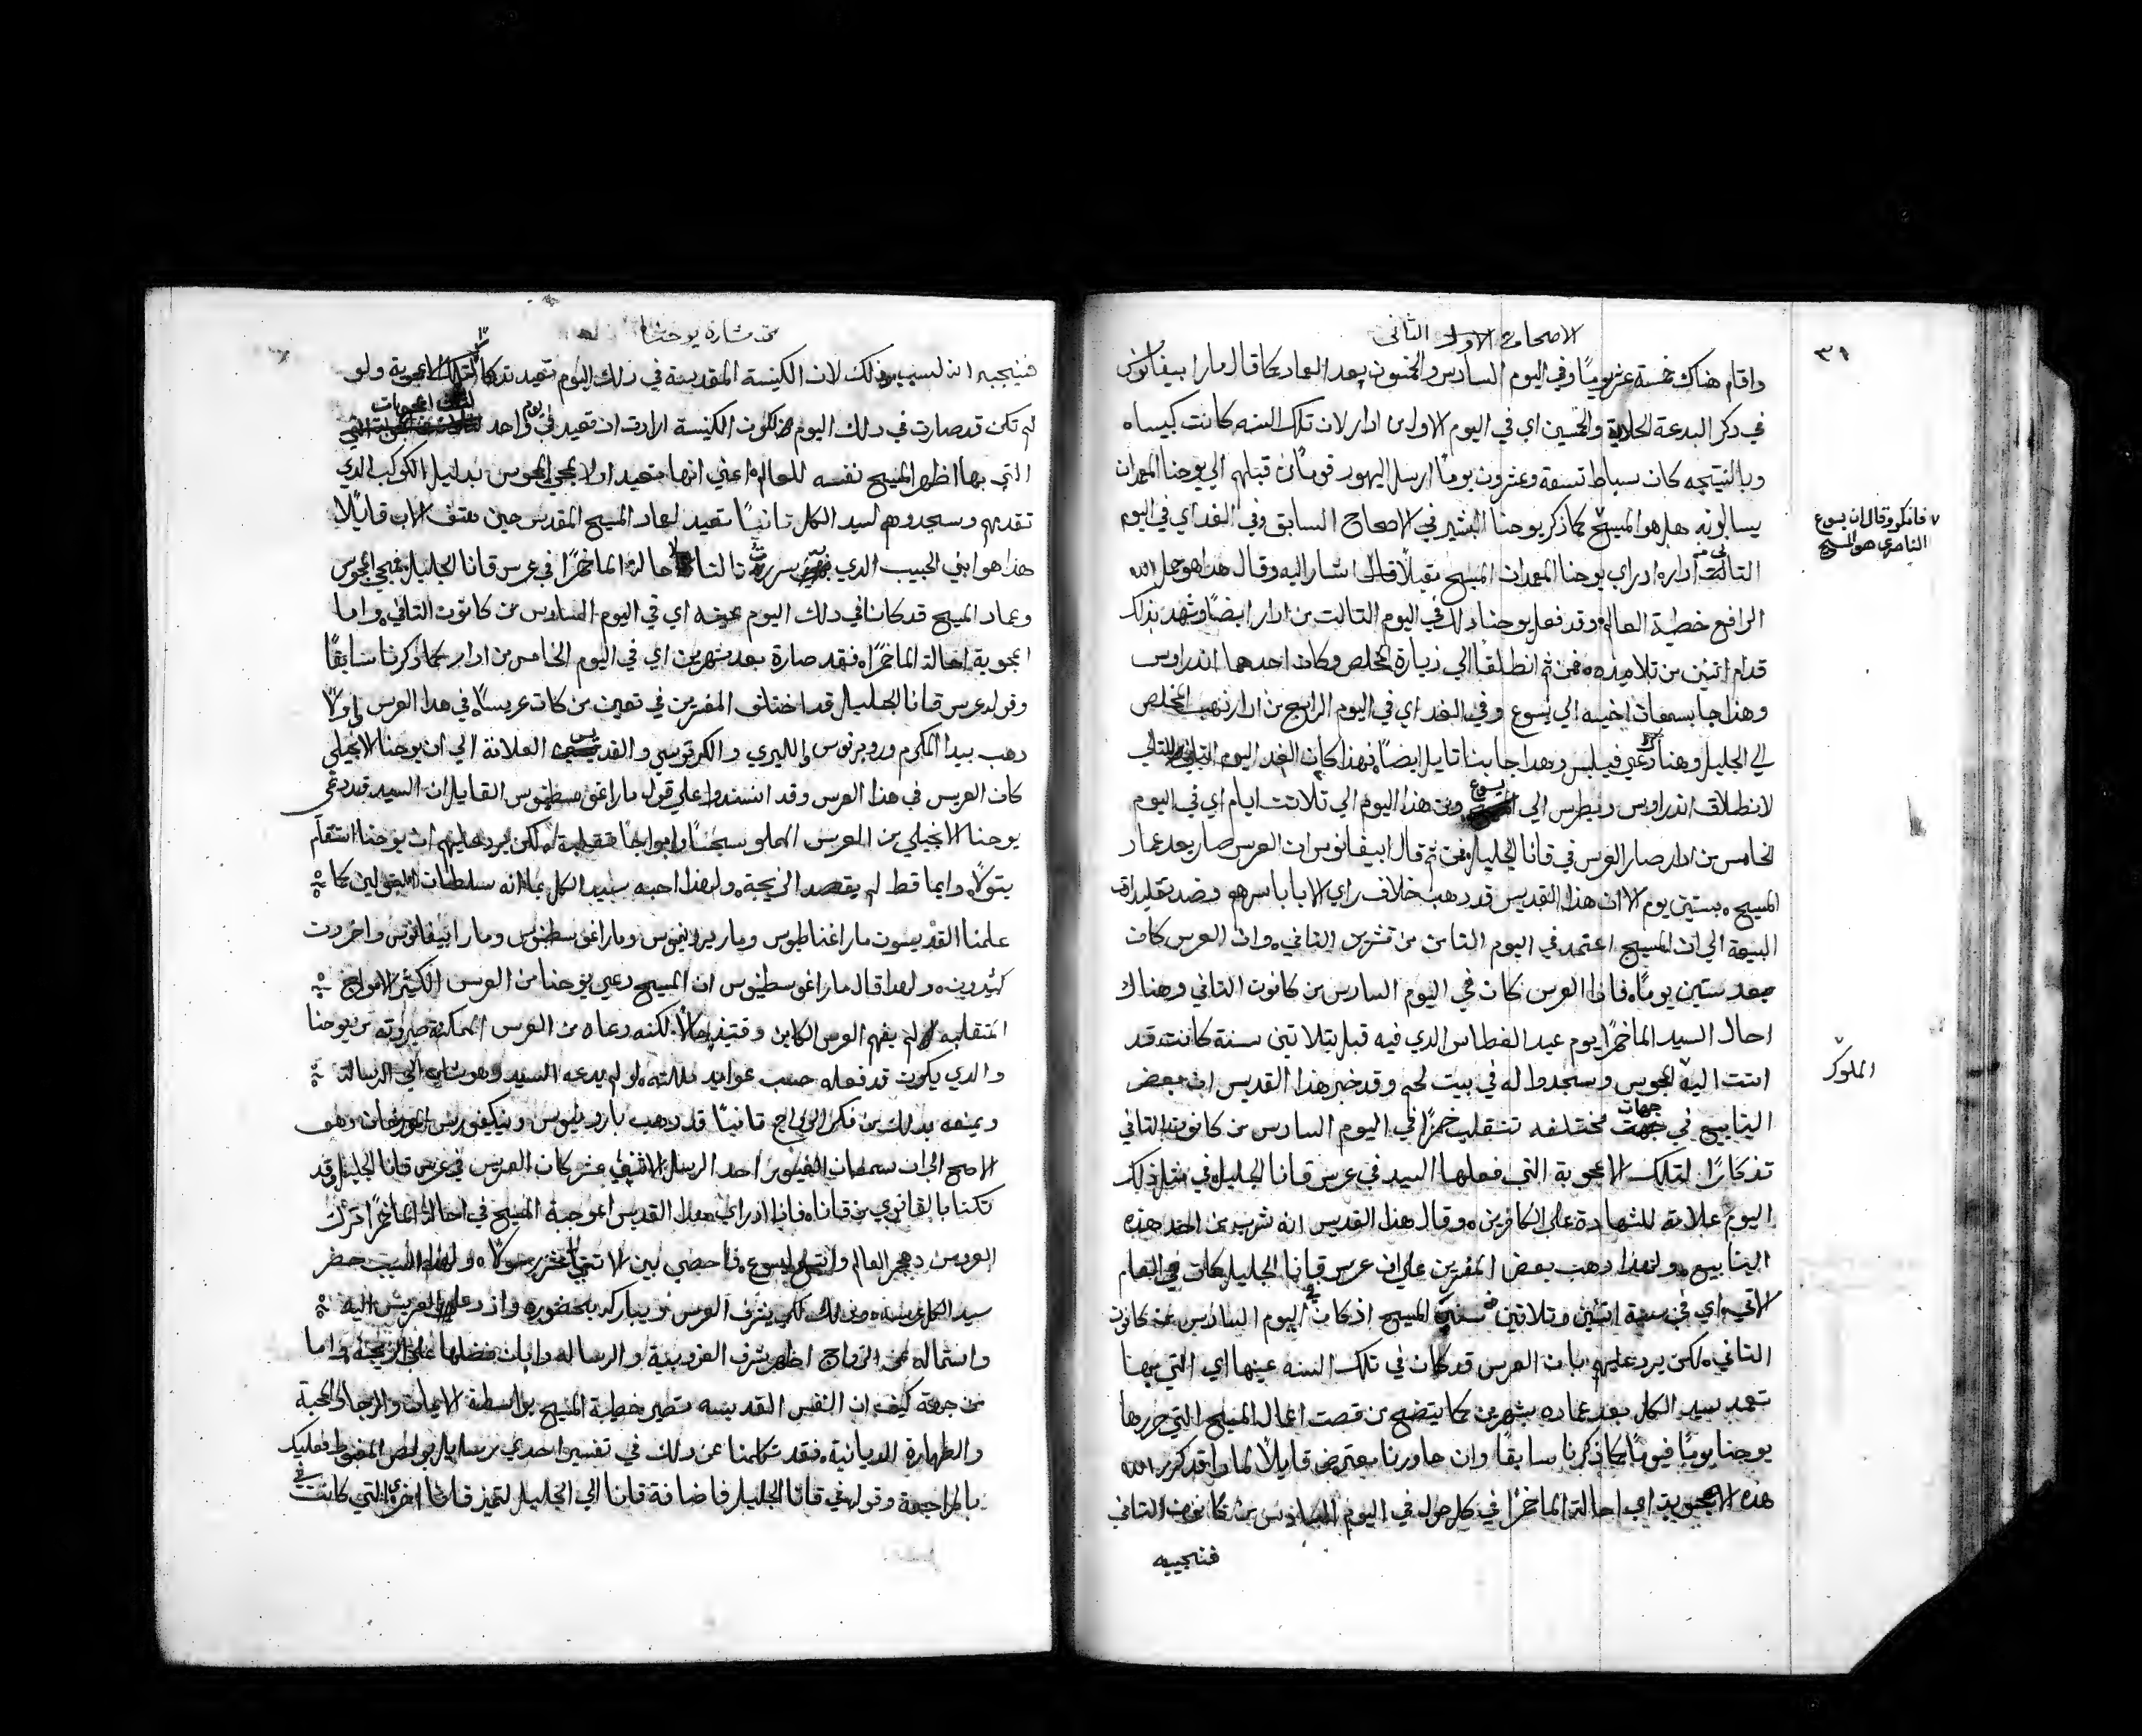 ٣١
الاصحاح الاول الثانى
واقام هناك خمسة عشر يومًا وفي اليوم السادس والخمسون بعد العماد كما قال مار ابيفانوس
في ذكر البدعة الحادية والخمسين اي في اليوم الاول من ادار لان تلك السنه كانت كبيساه
وبالنتيجه كان سباط تسعة وعشرون يومًا ارسل اليهود قومًا من قبلهم الي يوحنا المعمدان
يسالونه هل هو المسيح كما ذكر يوحنا البشير في الاصحاح السابق وفي الغد اي في اليوم
فانكر وقال ان يسوع
الناصري هو المسيح
التالت من ادار راي يوحنا المعمدان المسيح مقبلًا اشار اليه وقال هذا هو حمل الله
الرافع خطية العالم وقد فعل يوحنا ذلك في اليوم التالت من ادار ايضًا وشهد بذلك
قدام اتنين من تلاميذه فمن ثم انطلقا الي زيارة المخلص وكان احدهما اندراوس
وهذا جا بسمعان اخيه الي يسوع وفي الغد اي في اليوم الرابع من ادار ذهب المخلص
الي الجليل وهناك دعي فيلبس وهدا جا بناتنايل ايضًا فهذا كان الغد اليوم التالي
لانطلاق اندراوس وبطرس الي يسوع ومن هذا اليوم الي تلاتت ايام اي في اليوم
الخامس من ادار صار العرس في قانا الجليل فمن ثم قال ابيفانوس ان العرس صار بعد عماد
المسيح بستين يوم الا ان هذا القديس قد دهب خلاف راي الابا باسرهم وضد تقليدات
البيعة الي ان المسيح اعتمد في اليوم التامن من تشرين التاني وان العرس كان
بعد ستين يومًا فاذا العرس كان في اليوم السادس من كانون التاني وهناك
احال السيد الما خمرًا يوم عيد الغطاس الدي فيه قبل بتلاتين سنة كانت قد
اتت اليه المجوس وسجدوا له في بيت لحم وقد خبر هذا القديس ان بعض
الملوك
الينابيع في جهات مختلفه تنقلب خمرًا في اليوم السادس من كانون التاني
تذكارًا لتلك الاعجوبة التي فعلها السيد في عرس قانا الجليل في مثل ذلك
اليوم علامة للشهادة علي الكافرين وقال هذا القديس انه شرب من احد هذه
الينابيع ولهذا دهب بعض المفسرين علي ان عرس قانا الجليل كان في العام
الاتي اي في سنة اتنين وتلاتين من المسيح اذ كان في اليوم السادس من كانون
التاني لكن يرد عليهم بان العرس قد كان في تلك السنه عينها اي التي بها
تعمد سيد الكل بعد عماده بشهرين كما يتضح من قصت اعمال المسيح التي حررها
يوحنا يومًا فيومًا كما ذكرنا سابقًا وان حاورنا معترض قايلًا لماذا قد كرر الله
هذه الاعجوبة اي احالة الما خمرًا في كل حول في اليوم السادس من كانون التاني
فنجيبه
من بشارة يوحنا
فنجيبه ان لسبب ذلك لان الكنيسة المقدسة في ذلك اليوم تعيد تذكارًا لتلك الاعجوبة ولو
لم تكن قد صارت في دلك اليوم لكون الكنيسة ارادت ان تعيد في يوم واحد لثلث اعجوبات
التي بها اظهر المسيح نفسه للعالم اعني انها تعيد اولا لمجي المجوس بدليل الكوكب الدي
تقدمهم وسجدوهم لسيد الكل تانيًا تعيد لعماد المسيح المقدس حين هتف الاب قايلًا
هذا هو ابني الحبيب الدي به سررت تالتًا لاحالة الما خمرًا في عرس قانا الجليل فمجي المجوس
وعماد المسيح قد كانا في دلك اليوم عينه اي في اليوم السادس من كانون التاني واما
اعجوبة احالة الما خمرًا فقد صارة بعد شهرين اي في اليوم الخامس من ادار كما ذكرنا سابقًا
وقوله عرس قانا الجليل قد اختلف المفسرين في تعين من كان عريسًا في هدا العرس اولًا
دهب بيدا المكرم وروبرتوس والليري والكرتوسي والقديس العلامة الي ان يوحنا الانجيلي
كان العريس في هذا العرس وقد استندوا علي قول مار اغوسطينوس القايل ان السيد قد دعي
يوحنا الانجيلي من العرس المملو سجسًا وامواجًا متقلبة لكن يرد عليهم ان يوحنا استقام
بتولًا دايما قط لم يقصد الزيجة ولهذا احبه سيد الكل بما انه سلطان البتولين كما
علمنا القديسون مار اغناطيوس ومار يرونيموس ومار اغوسطينوس ومار ابيفانوس واخروت
كثيرين ولهدا قال مار اغوسطينوس ان المسيح دعي يوحنا من العرس الكثير الامواج
المتقلبه لم يفهم العرس الكاين وقتيذ حالًا لكنه دعاه من العرس الممكنة صيرورته من يوحنا
والدي يكون قد فعله حسب عوايد ملته لو لم يدعه السيد وهو شاب الي الرسالة
ويمنعه بدلك من فكر الزواج تانيًا قد دهب بارونيوس ونيكيفورس وهو
الاصح الي ان سمعان الغيور احد الرسل الاتني عشر كان العريس في عرس قانا الجليل وقد
تكنا بالقانوي من قانا فاذا اد راي هدا القديس اعوجبة المسيح في احالة الما خمرًا ترك
العروس وهجر العالم واتبع ليسوع فاحصي بين الاتني عشر رسولًا ولهذا السبب حضر
سيد الكل عرسه وذلك لكي يشرف العرس ويباركه بحضوره واذ دعا العريس اليه
واستماله عن الزواج اظهر شرف العزوبية والرساله وابان فضلها علي الزيجة واما
من جهة كيف ان النفس القديسه تصير خطيبة المسيح بواسطة الايمان والرجا والمحبة
والطهارة الديانية فقد تكلمنا عن دلك في تفسير احدي رسايل بولص المغبوط فعليك
بالمراجعة وقوله في قانا الجليل فاضافة قانا الي الجليل لتميز قانا اخرة التي كانت في